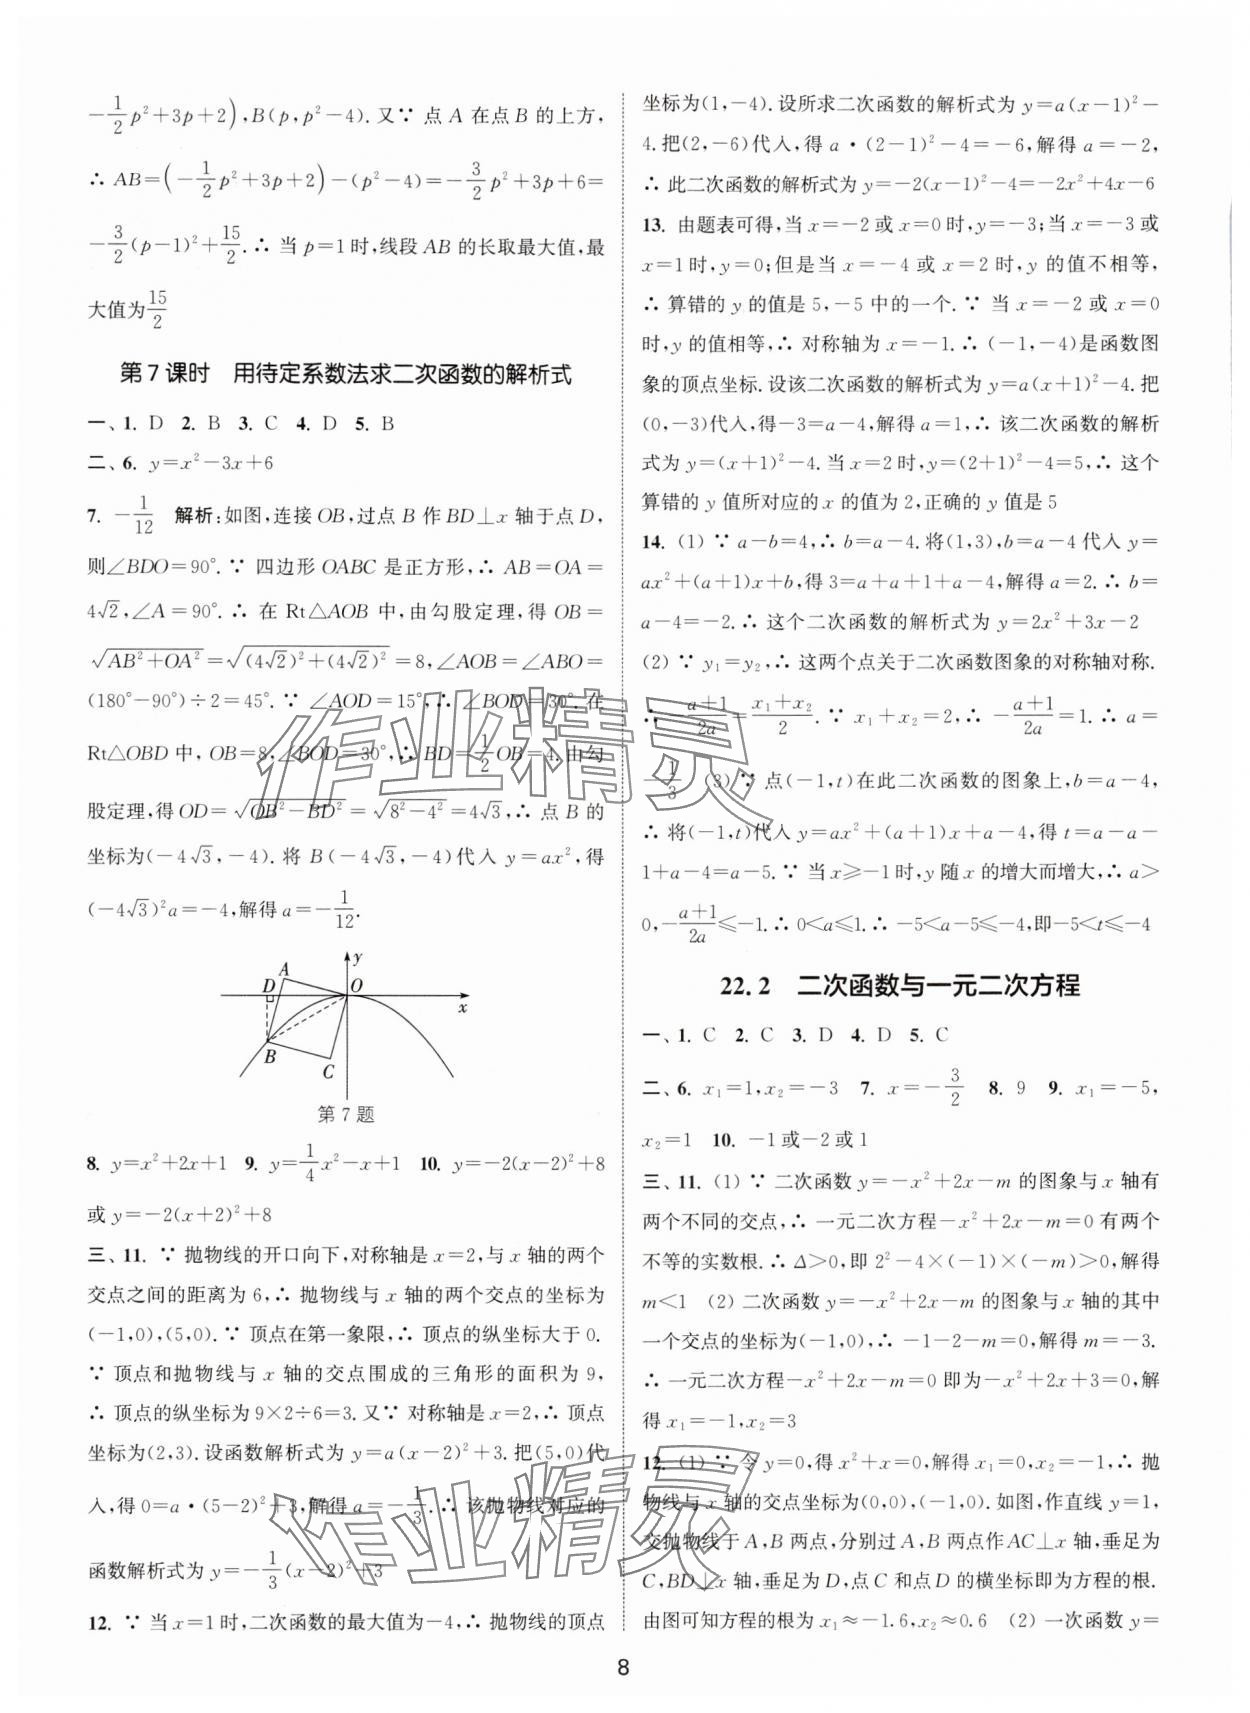 -1/2p²+3p+2),B(p,p²-4).又∵ 点 A 在点 B 的上方,
∴ AB=(-1/2p²+3p+2)-(p²-4)=-3/2p²+3p+6=
-3/2(p-1)²+15/2.∴ 当 p=1 时,线段 AB 的长取最大值,最
大值为15/2
第 7 课时 用待定系数法求二次函数的解析式
一、1. D 2. B 3. C 4. D 5. B
二、6. y=x²-3x+6
7. -1/12 解析:如图,连接 OB,过点 B 作 BD⊥x 轴于点 D,
则∠BDO=90°.∵ 四边形 OABC 是正方形,∴ AB=OA=
4√2,∠A=90°.∴ 在 Rt△AOB 中,由勾股定理,得 OB=
√(AB²+OA²)=√((4√2)²+(4√2)²)=8,∠AOB=∠ABO=
(180°-90°)÷2=45°.∵ ∠AOD=15°,∴ ∠BOD=30°.在
Rt△OBD 中,OB=8,∠BOD=30°,∴ BD=1/2OB=4.由勾
股定理,得 OD=√(OB²-BD²)=√(8²-4²)=4√3,∴ 点 B 的
坐标为(-4√3,-4).将 B(-4√3,-4)代入 y=ax²,得
(-4√3)²a=-4,解得 a=-1/12.
A
y
D
O
x
B
C
第 7 题
8. y=x²+2x+1 9. y=1/4x²-x+1 10. y=-2(x-2)²+8
或 y=-2(x+2)²+8
三、11. ∵ 抛物线的开口向下,对称轴是 x=2,与 x 轴的两个
交点之间的距离为 6,∴ 抛物线与 x 轴的两个交点的坐标为
(-1,0),(5,0).∵ 顶点在第一象限,∴ 顶点的纵坐标大于 0.
∵ 顶点和抛物线与 x 轴的交点围成的三角形的面积为 9,
∴ 顶点的纵坐标为 9×2÷6=3.又∵ 对称轴是 x=2,∴ 顶点
坐标为(2,3).设函数解析式为 y=a(x-2)²+3.把(5,0)代
入,得 0=a·(5-2)²+3,解得 a=-1/3.∴ 该抛物线对应的
函数解析式为 y=-1/3(x-2)²+3
12. ∵ 当 x=1 时,二次函数的最大值为-4,∴ 抛物线的顶点
坐标为(1,-4).设所求二次函数的解析式为 y=a(x-1)²-
4.把(2,-6)代入,得 a·(2-1)²-4=-6,解得 a=-2,
∴ 此二次函数的解析式为 y=-2(x-1)²-4=-2x²+4x-6
13. 由题表可得,当 x=-2 或 x=0 时,y=-3;当 x=-3 或
x=1 时,y=0;但是当 x=-4 或 x=2 时,y 的值不相等,
∴ 算错的 y 的值是 5,-5 中的一个.∵ 当 x=-2 或 x=0
时,y 的值相等,∴ 对称轴为 x=-1.∴ (-1,-4)是函数图
象的顶点坐标.设该二次函数的解析式为 y=a(x+1)²-4.把
(0,-3)代入,得-3=a-4,解得 a=1,∴ 该二次函数的解析
式为 y=(x+1)²-4.当 x=2 时,y=(2+1)²-4=5,∴ 这个
算错的 y 值所对应的 x 的值为 2,正确的 y 值是 5
14. (1) ∵ a-b=4,∴ b=a-4.将(1,3),b=a-4 代入 y=
ax²+(a+1)x+b,得 3=a+a+1+a-4,解得 a=2.∴ b=
a-4=-2.∴ 这个二次函数的解析式为 y=2x²+3x-2
(2) ∵ y₁=y₂,∴ 这两个点关于二次函数图象的对称轴对称.
∴ -(a+1)/2a=(x₁+x₂)/2.∵ x₁+x₂=2,∴ -(a+1)/2a=1.∴ a=
-1/3 (3) ∵ 点(-1,t)在此二次函数的图象上,b=a-4,
∴ 将(-1,t)代入 y=ax²+(a+1)x+a-4,得 t=a-a-
1+a-4=a-5.∵ 当 x≥-1 时,y 随 x 的增大而增大,∴ a>
0,-(a+1)/2a≤-1.∴ 0<a≤1.∴ -5<a-5≤-4,即-5<t≤-4
22.2 二次函数与一元二次方程
一、1. C 2. C 3. D 4. D 5. C
二、6. x₁=1,x₂=-3 7. x=-3/2 8. 9 9. x₁=-5,
x₂=1 10. -1或-2或1
三、11. (1) ∵ 二次函数 y=-x²+2x-m 的图象与 x 轴有
两个不同的交点,∴ 一元二次方程-x²+2x-m=0 有两个
不等的实数根.∴ Δ>0,即 2²-4×(-1)×(-m)>0,解得
m<1 (2) 二次函数 y=-x²+2x-m 的图象与 x 轴的其中
一个交点的坐标为(-1,0),∴ -1-2-m=0,解得 m=-3.
∴ 一元二次方程-x²+2x-m=0 即为-x²+2x+3=0,解
得 x₁=-1,x₂=3
12. (1) ∵ 令 y=0,得 x²+x=0,解得 x₁=0,x₂=-1,∴ 抛
物线与 x 轴的交点坐标为(0,0),(-1,0).如图,作直线 y=1,
交抛物线于 A,B 两点,分别过 A,B 两点作 AC⊥x 轴,垂足为
C,BD⊥x 轴,垂足为 D,点 C 和点 D 的横坐标即为方程的根.
由图可知方程的根为 x₁≈-1.6,x₂≈0.6 (2) 一次函数 y=
8
作业精灵
作业精灵